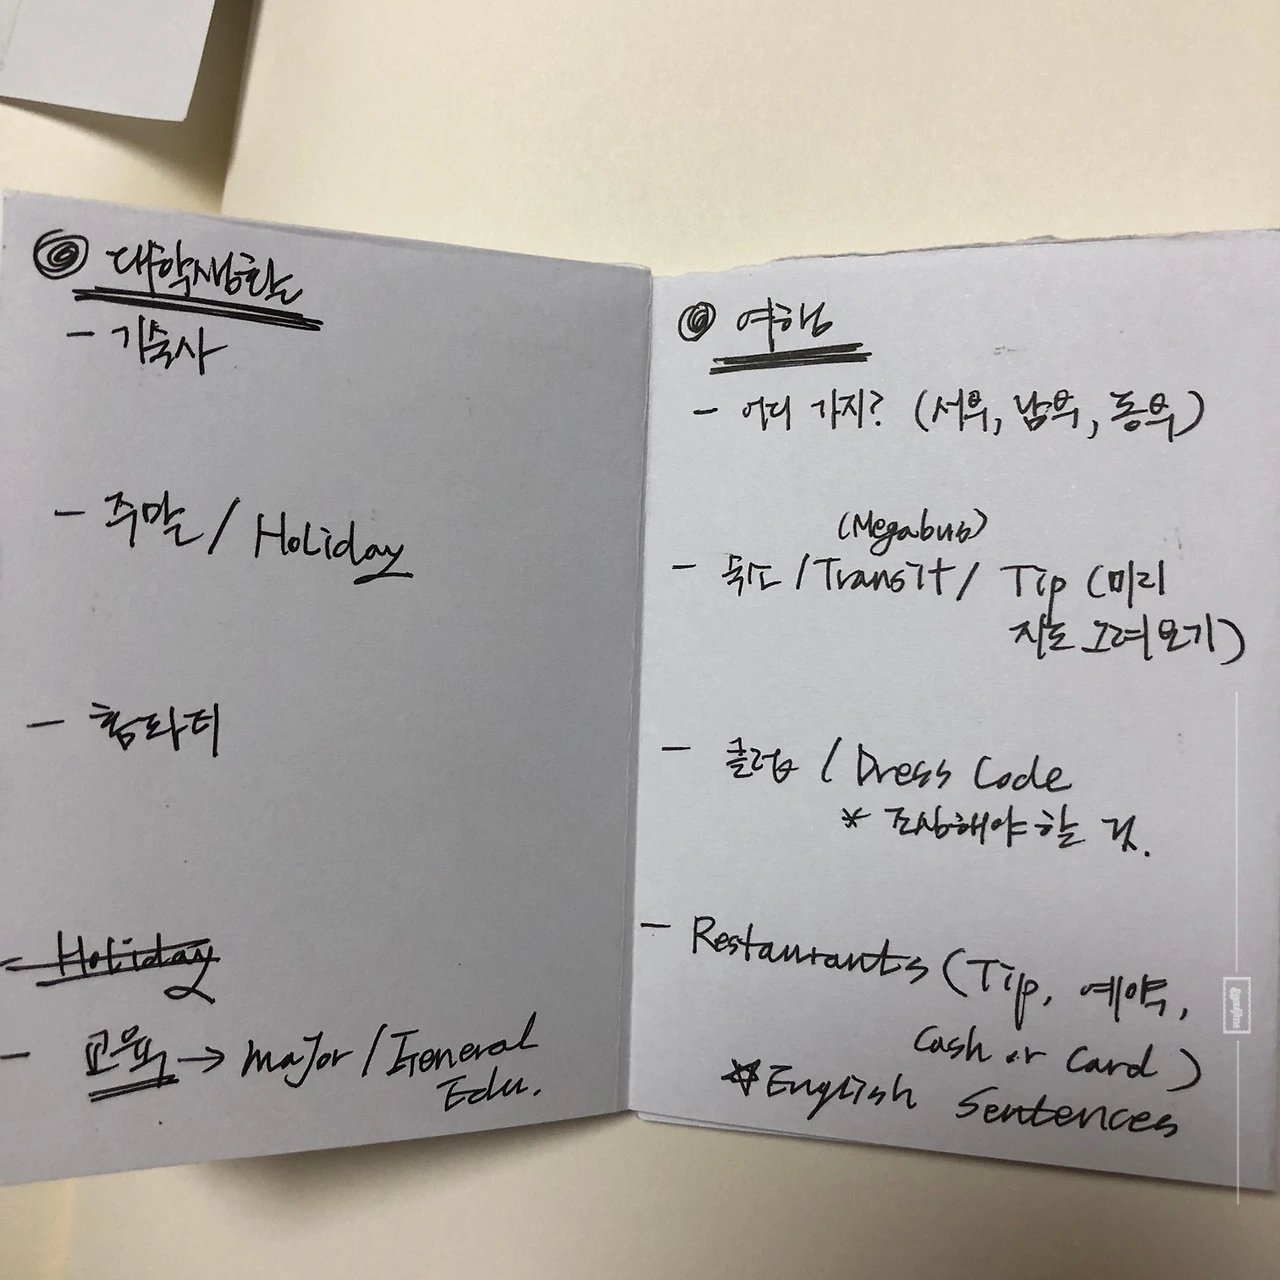 대학생활
- 기숙사
- 주말 / Holiday
- 홈파티
- Holiday
- 교육 → major / General
Edu.
여행
- 어디 가지? (서부, 남부, 동부)
(Megabus)
- 숙소 / Transit / Tip (미리
지도 그려보기)
- 클럽 / Dress Code
* 조심해야 할 것.
- Restaurants (Tip, 예약,
Cash or Card)
☆ English Sentences